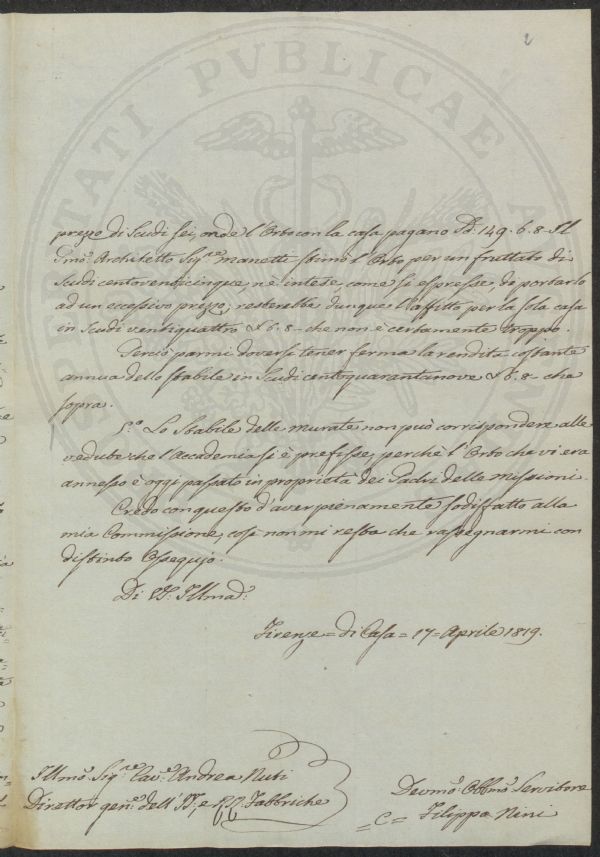 2
prezzo di Scudi sei, onde l'Orto con la casa pagano Sd. 149. 6. 8. Il
Pmo: Architetto Sigre. Manetti stimò l'Orto per un fruttato di
Scudi centoventicinque, nè intese, come si espresse, di portarlo
ad un eccessivo prezzo, resterebbe dunque l'affitto per la sola casa
in Scudi ventiquattro £ 6. 8 - che non è certamente troppo.
Perciò parmi doversi tener ferma la rendita costante
annua dello stabile in Scudi centoquarantanove £ 6. 8 - che
sopra.
5.o Lo Stabile delle Murate non può corrispondere alle
vedute che l'Accademia si è prefisse, perchè l'Orto che vi era
annesso è oggi passato in proprietà dei Padri delle Missioni.
Credo con questo d'aver pienamente sodisfatto alla
mia Commissione, così non mi resta che rassegnarmi con
distinto Ossequio.
Di VS: Illma:
Firenze = di Casa = 17 = Aprile 1819.
Illmo: Sigre. Cave. Andrea Nuti
Direttor gene: dell' II, e RR. Fabbriche
Devmo: Obbmo: Servitore
= C = Filippo Nini
PIETATI PVBLICAE